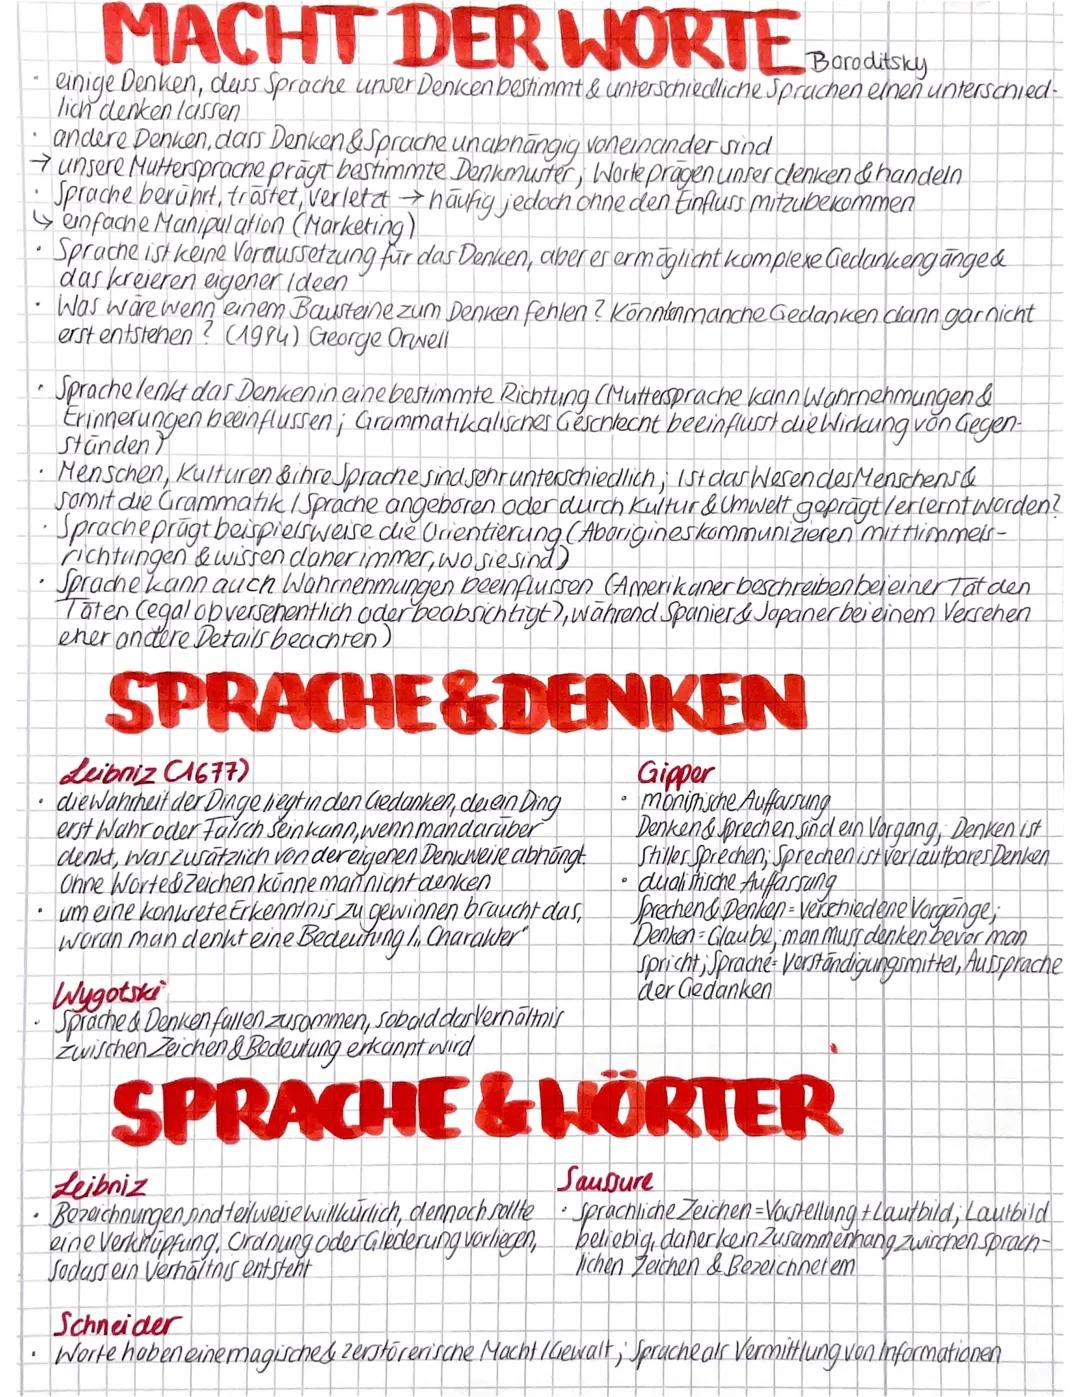 MACHT DER WORTE Boroditsky
· einige Denken, dass Sprache unser Denken bestimmt & unterschiedliche Sprachen einen unterschied-
lich denken lassen
· andere Denken, dass Denken & Sprache unabhängig voneinander sind
→ unsere Muttersprache prägt bestimmte Denkmuster, Worte prägen unser denken & handeln
· Sprache berührt, tröstet, verletzt → häufig jedoch ohne den Einfluss mitzubekommen
↳ einfache Manipulation (Marketing)
· Sprache ist keine Voraussetzung für das Denken, aber es ermöglicht komplexe Gedankengänge &
das kreieren eigener Ideen
· Was wäre wenn einem Bausteine zum Denken fehlen? Könnten manche Gedanken dann gar nicht
erst entstehen? (1984) George Orwell
· Sprache lenkt das Denken in eine bestimmte Richtung (Muttersprache kann Wahrnehmungen &
Erinnerungen beeinflussen; Grammatikalisches Geschlecht beeinflusst die Wirkung von Gegen-
ständen)
· Menschen, Kulturen & ihre Sprache sind sehr unterschiedlich; Ist das Wesen des Menschens &
somit die Grammatik / Sprache angeboren oder durch Kultur & Umwelt geprägt / erlernt worden?
· Sprache prägt beispielsweise die Orientierung (Aborigines kommunizieren mit Himmels-
richtungen & wissen daher immer, wo sie sind)
· Sprache kann auch Wahrnehmungen beeinflussen (Amerikaner beschreiben bei einer Tat den
Täter (egal ob versehentlich oder beabsichtigt), während Spanier & Japaner bei einem Versehen
eher andere Details beachten)
SPRACHE & DENKEN
Leibniz (1677)
· die Wahrheit der Dinge liegt in den Gedanken, da ein Ding
erst Wahr oder Falsch sein kann, wenn man darüber
denkt, was zusätzlich von der eigenen Denkweise abhängt.
Ohne Worte & Zeichen könne man nicht denken
· um eine konkrete Erkenntnis zu gewinnen braucht das,
woran man denkt eine Bedeutung / „Charakter"
Wygotski
· Sprache & Denken fallen zusammen, sobald das Verhältnis
zwischen Zeichen & Bedeutung erkannt wird
Gipper
· monistische Auffassung
Denken & Sprechen sind ein Vorgang; Denken ist
Stilles Sprechen; Sprechen ist verlautbares Denken
· dualistische Auffassung
Sprechen & Denken = verschiedene Vorgänge;
Denken = Glaube; man muss denken bevor man
spricht; Sprache = Verständigungsmittel, Aussprache
der Gedanken
SPRACHE & WÖRTER
Leibniz
· Bezeichnungen sind teilweise willkürlich, dennoch sollte
eine Verknüpfung, Ordnung oder Gliederung vorliegen,
sodass ein Verhältnis entsteht
Saussure
· sprachliche Zeichen = Vorstellung + Lautbild; Lautbild
beliebig, daher kein Zusammenhang zwischen sprach-
lichen Zeichen & Bezeichnetem
Schneider
· Worte haben eine magische & zerstörerische Macht / Gewalt; Sprache als Vermittlung von Informationen